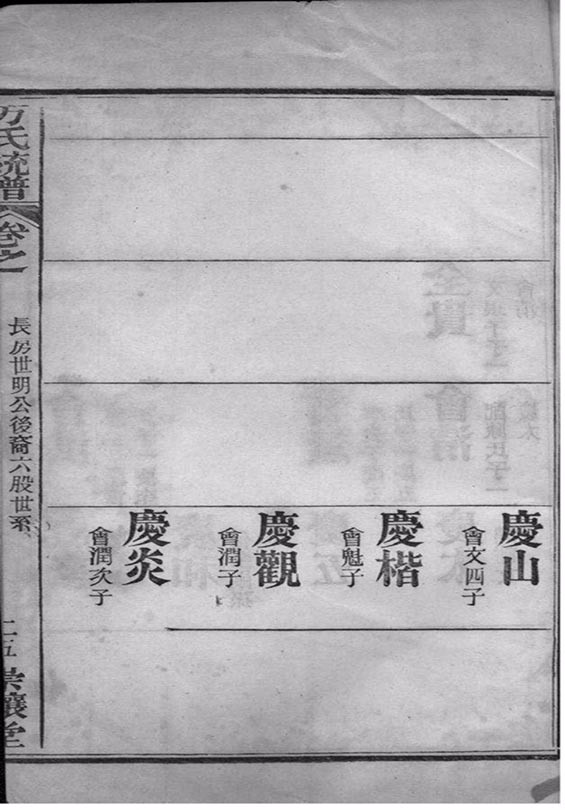 慶山
會文四子
慶楷
會魁子
慶觀
會潤子
慶炎
會潤次子
万氏統譜
卷之一
長房世明公後裔六股世系
二五